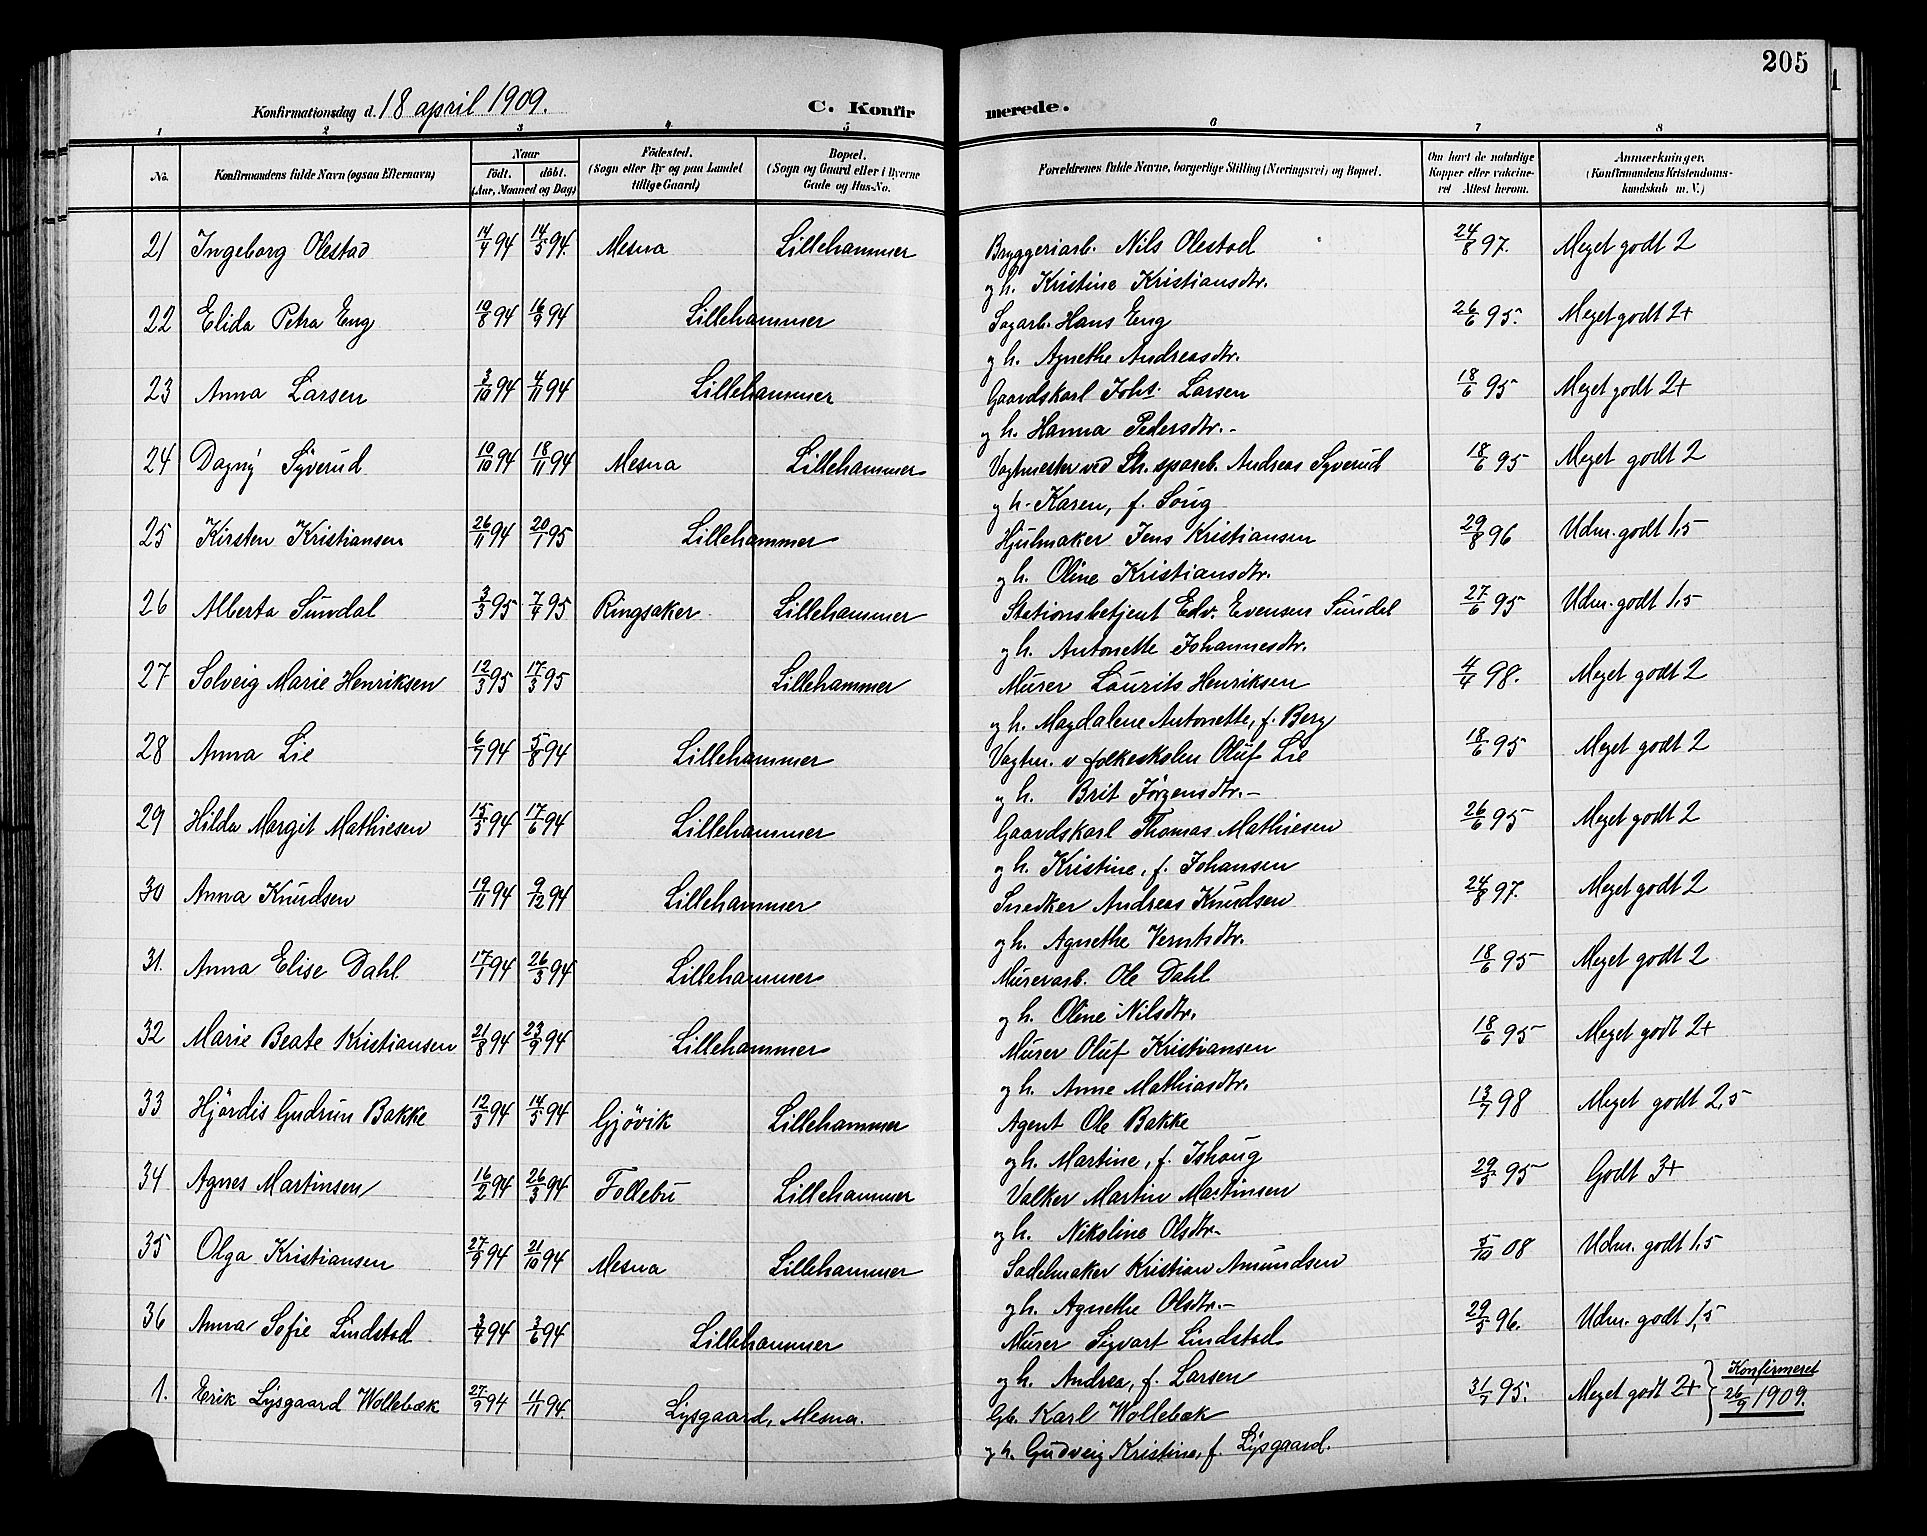 205
Konfirmationsdag d. 18 april 1909.
C. Konfirmerede.
1 2 3 4 5 6 7 8
No. Konfirmandens fulde Navn (ogsaa Efternavn) Naar födt. döbt. (Aar, Maaned og Dag) Födested. (Sogn eller By og paa Landet tillige Gaard) Bopæl. (Sogn og Gaard eller i Byerne Gade og Hus-No.) Forældrenes fulde Navne, borgerlige Stilling (Næringsvei) og Bopæl. Om havt de naturlige Kopper eller vakcineret Attest herom. Anmærkninger. (Konfirmandens Kristendomskundskab m. V.)
21 Ingeborg Olestad 14/4 94 14/5 94. Mesna Lillehammer Bryggeriarb. Nils Olestad 24/8 97. Meget godt 2
og h. Kristine Kristiansdtr.
22 Elida Petra Eng 10/8 94 16/9 94 Lillehammer Sagarb. Hans Eng 26/6 95. Meget godt 2+
og h. Agnethe Andreasdtr.
23 Anna Larsen 3/10 94 4/11 94 Lillehammer Gaardskarl Johs. Larsen 18/6 95 Meget godt 2+
og h. Hanna Pedersdtr.-
24 Dagny Syverud 10/10 94 18/11 94 Mesna Lillehammer Vagtmester ved Lh. spareb. Andreas Syverud 18/6 95 Meget godt 2
og h. Karen, f. Soug
25 Kirsten Kristiansen 26/11 94 20/1 95 Lillehammer Hjulmaker Jens Kristiansen 29/8 96 Udm. godt 1,5
og h. Oline Kristiansdtr.
26 Alberta Sundal 3/3 95 7/4 95 Ringsaker Lillehammer Stationsbetjent Edv. Evensen Sundal 27/6 95 Udm. godt 1,5
og h. Antonette Johannesdtr.
27 Solveig Marie Henriksen 12/3 95 17/3 95 Lillehammer Murer Laurits Henriksen 4/4 98. Meget godt 2
og h. Magdalene Antonette, f. Berg
28 Anna Lie 6/7 94 5/8 94 Lillehammer Vagtm. v folkeskolen Oluf Lie 18/6 95 Meget godt 2
og h. Brit Jörgensdtr.-
29 Hilda Margit Mathiesen 15/3 94 17/6 94 Lillehammer Gaardskarl Thomas Mathiesen 26/6 95 Meget godt 2
og h. Kristine, f. Johansen
30 Anna Knudsen 19/11 94 9/12 94 Lillehammer Snedker Andreas Knudsen 24/8 97. Meget godt 2
og h. Agnethe Verntsdtr.
31. Anna Elise Dahl 17/1 94 26/3 94 Lillehammer Murerarb. Ole Dahl 18/6 95 Meget godt 2
og h. Oline Nilsdtr.
32 Marie Beate Kristiansen 21/8 94 23/9 94 Lillehammer Murer Oluf Kristiansen 18/6 95 Meget godt 2+
og h. Anne Mathiasdtr.
33 Hjördis Gudrun Bakke 12/3 94 14/5 94 Gjövik Lillehammer Agent Ole Bakke 13/7 98 Meget godt 2,5
og h. Martine, f. Ishoug
34 Agnes Martinsen 16/2 94 26/3 94 Follebu Lillehammer Valker Martin Martinsen 29/5 95 Godt 3+
og h. Nikoline Olsdtr.
35 Olga Kristiansen 27/9 94 21/10 94 Mesna Lillehammer Sadelmaker Kristian Amundsen 5/10 08 Udm. godt 1,5
og h. Agnethe Olsdtr.-
36 Anna Sofie Lindstad 3/4 94 3/6 94 Lillehammer Murer Sigvart Lindstad 29/5 96. Udm. godt 1,5
og h. Andrea, f. Larsen
1. Erik Lysgaard Wollebæk 27/9 94 11/11 94. Lysgaard, Mesna. Gb. Karl Wollebæk 31/7 95. Meget godt 2+ Konfirmeret 26/9 1909.
og h. Gudveig Kristine, f. Lysgaard.